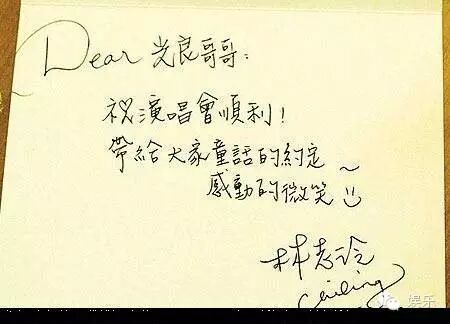 Dear 光良哥哥:
祝演唱會順利!
帶給大家童話的約定~
感動的微笑
林志玲
Chiling
娱乐